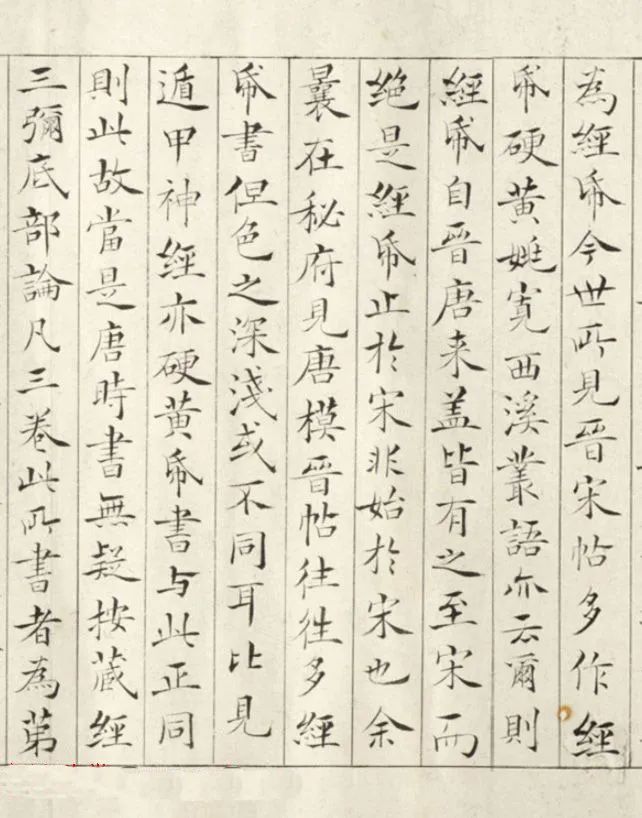 為經帋今世所見晉宋帖多作經
帋硬黃姚寬西溪叢語亦云爾則
經帋自晉唐来盖皆有之至宋而
絶是經帋止於宋非始於宋也余
曩在秘府見唐模晉帖往往多經
帋書但色之深淺或不同耳比見
遁甲神經亦硬黃帋書与此正同
則此故當是唐時書無疑按藏經
三彌底部論凡三卷此所書者為苐